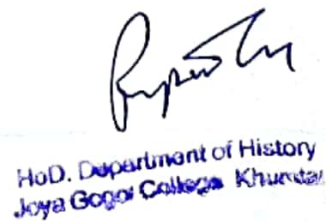 HoD. Department of History
Joya Gogoi College Khumtai